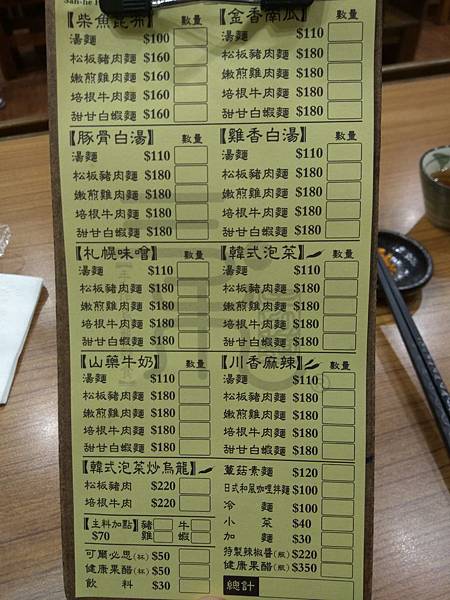 San-he
【柴魚昆布】 數量
湯麵 $100
松板豬肉麵 $160
嫩煎雞肉麵 $160
培根牛肉麵 $160
甜甘白蝦麵 $160
【金香南瓜】 數量
湯麵 $110
松板豬肉麵 $180
嫩煎雞肉麵 $180
培根牛肉麵 $180
甜甘白蝦麵 $180
【豚骨白湯】 數量
湯麵 $110
松板豬肉麵 $180
嫩煎雞肉麵 $180
培根牛肉麵 $180
甜甘白蝦麵 $180
【雞香白湯】 數量
湯麵 $110
松板豬肉麵 $180
嫩煎雞肉麵 $180
培根牛肉麵 $180
甜甘白蝦麵 $180
【札幌味噌】 數量
湯麵 $110
松板豬肉麵 $180
嫩煎雞肉麵 $180
培根牛肉麵 $180
甜甘白蝦麵 $180
【韓式泡菜】 數量
湯麵 $110
松板豬肉麵 $180
嫩煎雞肉麵 $180
培根牛肉麵 $180
甜甘白蝦麵 $180
【山藥牛奶】 數量
湯麵 $110
松板豬肉麵 $180
嫩煎雞肉麵 $180
培根牛肉麵 $180
甜甘白蝦麵 $180
【川香麻辣】 數量
湯麵 $110
松板豬肉麵 $180
嫩煎雞肉麵 $180
培根牛肉麵 $180
甜甘白蝦麵 $180
【韓式泡菜炒烏龍】
松板豬肉 $220
培根牛肉 $220
【主料加點】 豬 牛
$70 雞 蝦
可爾必思(杯) $50
健康果醋(杯) $50
飲料 $30
蕈菇素麵 $120
日式和風咖哩拌麵 $100
冷麵 $100
小菜 $40
加麵 $30
特製辣椒醬(瓶) $220
健康果醋(瓶) $350
總計